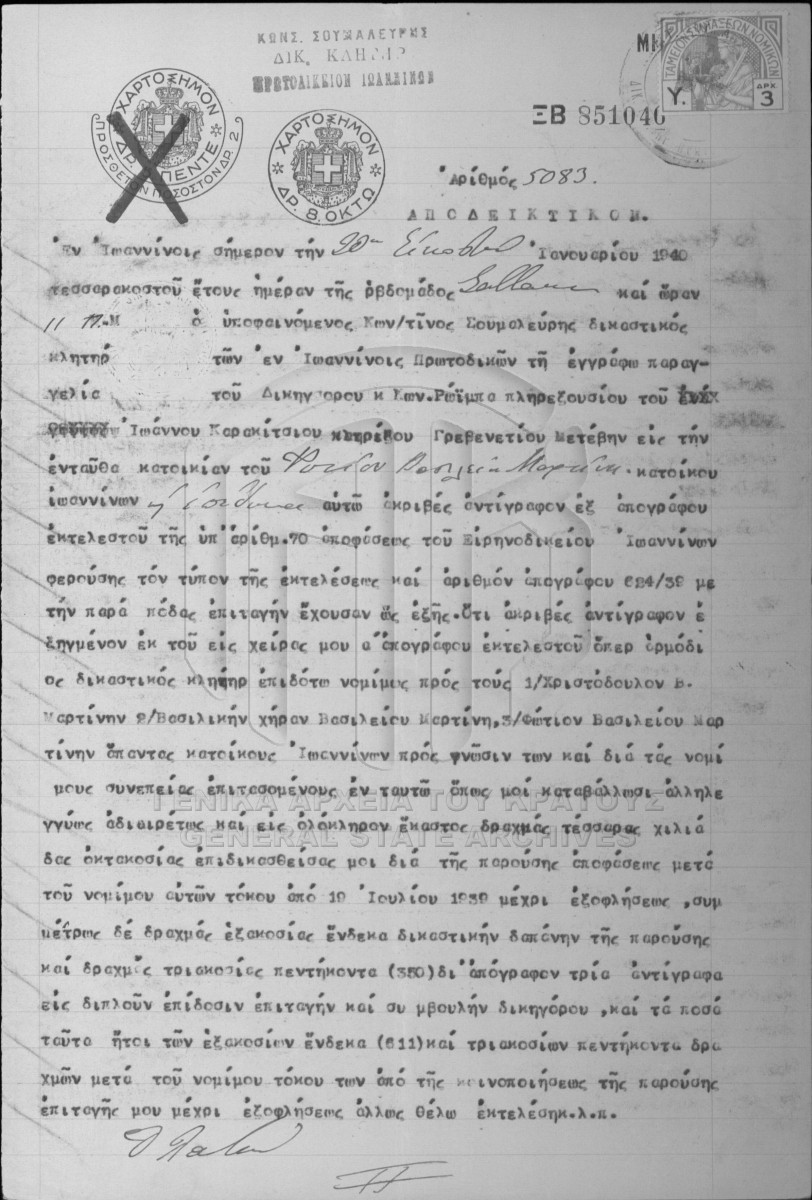 ΚΩΝΣ. ΣΟΥΜΑΛΕΥΡΗΣ
ΔΙΚ. ΚΛΗΤΗΡ
ΠΡΩΤΟΔΙΚΕΙΟΝ ΙΩΑΝΝΙΝΩΝ
ΤΑΜΕΙΟΝ ΣΥΝΤΑΞΕΩΝ ΝΟΜΙΚΩΝ
Υ.
ΔΡΧ. 3
ΧΑΡΤΟΣΗΜΟΝ
ΔΡ. ΠΕΝΤΕ
ΠΡΟΣΘΕΤΟΝ ΠΟΣΟΣΤΟΝ ΔΡ. 2
ΧΑΡΤΟΣΗΜΟΝ
ΔΡ. 8. ΟΚΤΩ
ΞΒ 851046
Ἀριθμός 5083.
ΑΠΟΔΕΙΚΤΙΚΟΝ.
Ἐν Ἰωαννίνοις σήμερον τήν 20ην Εἰκοστήν Ἰανουαρίου 1940
τεσσαρακοστοῦ ἔτους ἡμέραν τῆς ἑβδομάδος Σάββατον καί ὥραν
11 Π.Μ ὁ ὑποφαινόμενος Κων/τῖνος Σουμαλεύρης δικαστικός
κλητήρ τῶν ἐν Ἰωαννίνοις Πρωτοδικῶν τῇ ἐγγράφω παραγ-
γελία τοῦ Δικηγορου κ Κων. Ρωϊμπα πληρεξουσίου τοῦ
Ἰωάννου Καρακίτσιου κληρικου Γρεβενετίου Μετέβην εἰς τήν
ἐνταῦθα κατοικίαν τοῦ Φωτίου Βασιλείου Μαρτίνη κατοίκου
ἰωαννίνων αὐτῶ ἀκριβές ἀντίγραφον ἐξ ἀπογράφου
ἐκτελεστοῦ τῆς ὑπ' ἀρίθμ. 70 ἀποφάσεως τοῦ Εἰρηνοδικείου Ἰωαννίνων
φερούσης τόν τύπον τῆς ἐκτελέσεως καί ἀριθμόν ἀπογράφου 624/39 με
τήν παρά πόδας ἐπιταγήν ἔχουσαν ὡς ἐξῆς. Ὅτι ἀκριβές ἀντίγραφον ἐ
ξηγμένον ἐκ τοῦ εἰς χεῖρας μου ἀπογράφου ἐκτελεστοῦ ὅπερ ἁρμόδι
ος δικαστικός κλητήρ ἐπιδότω νομίμως πρός τούς 1/Χριστόδουλον Β.
Μαρτίνην 2/Βασιλικήν χήραν Βασιλείου Μαρτίνη, 3/Φώτιον Βασιλείου Μαρ
τίνην ἅπαντας κατοίκους Ἰωαννίνων πρός γνῶσιν των καί διά τάς νομί
μους συνεπείας ἐπιτασσομένους ἐν ταυτῶ ὅπως μοί καταβάλλωσι ἀλληλε
γγύως ἀδιαιρέτως καί εἰς ὁλόκληρον ἕκαστος δραχμάς τέσσαρας χιλιά
δας ὀκτακοσίας ἐπιδικασθείσας μοι διά τῆς παρούσης ἀποφάσεως μετά
τοῦ νομίμου αὐτῶν τόκου ἀπό 19 Ἰουλίου 1939 μέχρι ἐξοφλήσεως, συμ
μέτρως δέ δραχμάς ἐξακοσίας ἕνδεκα δικαστικήν δαπάνην τῆς παρούσης
καί δραχμάς τριακοσίας πεντήκοντα (350) δι' ἀπόγραφον τρία ἀντίγραφα
εἰς διπλοῦν ἐπίδοσιν ἐπιταγήν καί συ μβουλήν δικηγόρου, καί τά ποσά
ταῦτα ἤτοι τῶν ἐξακοσίων ἕνδεκα (611) καί τριακοσίων πεντήκοντα δρα
χμῶν μετά τοῦ νομίμου τόκου των ἀπό τῆς κοινοποιήσεως τῆς παρούσης
ἐπιταγῆς μου μέχρι ἐξοφλήσεως ἄλλως θέλω ἐκτελέση κ.λ.π.
ΓΕΝΙΚΑ ΑΡΧΕΙΑ ΤΟΥ ΚΡΑΤΟΥΣ
GENERAL STATE ARCHIVES